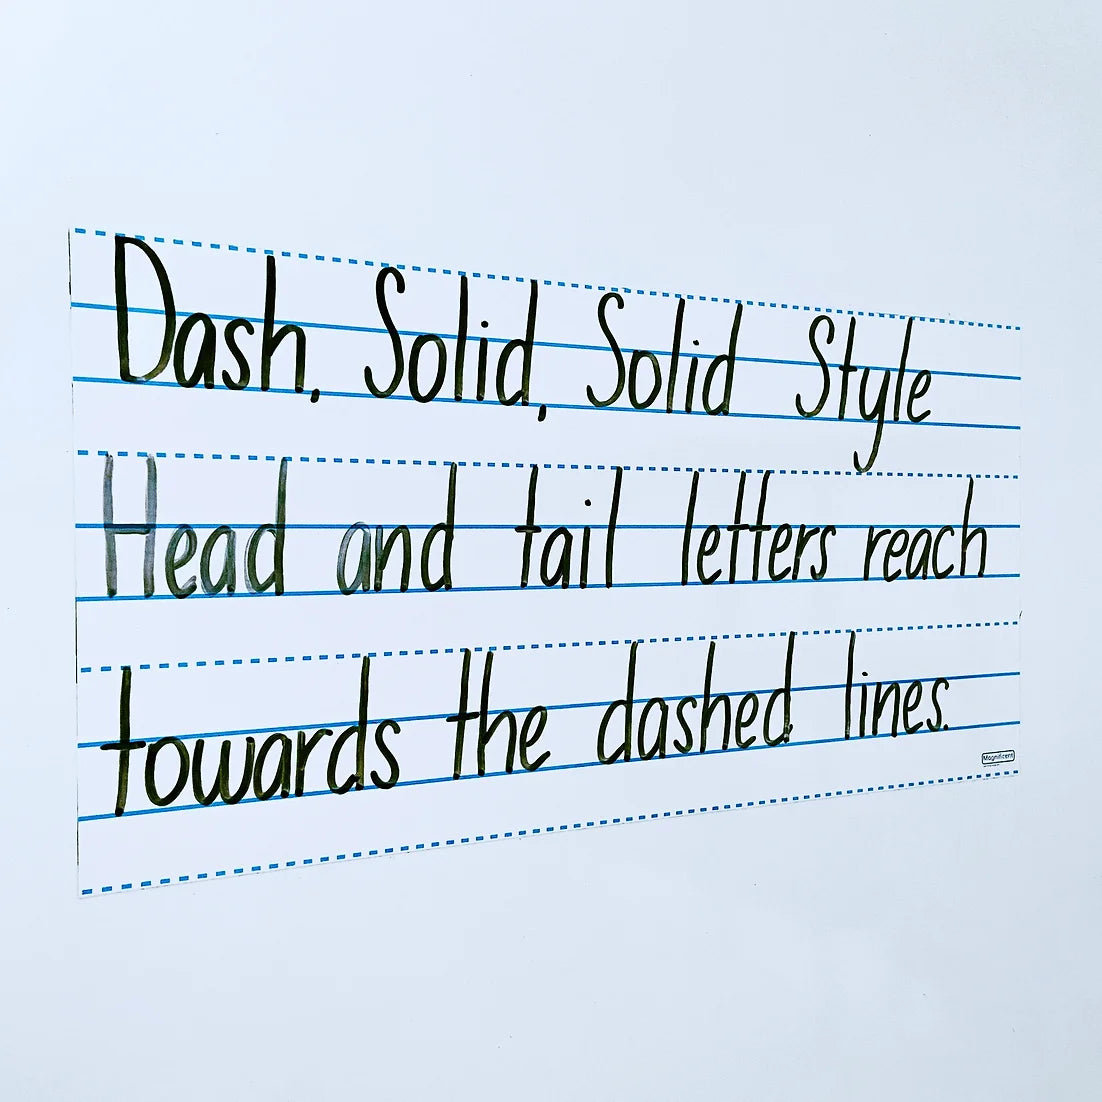 Dash, Solid, Solid Style
Head and tail letters reach
towards the dashed lines.
Magnificent